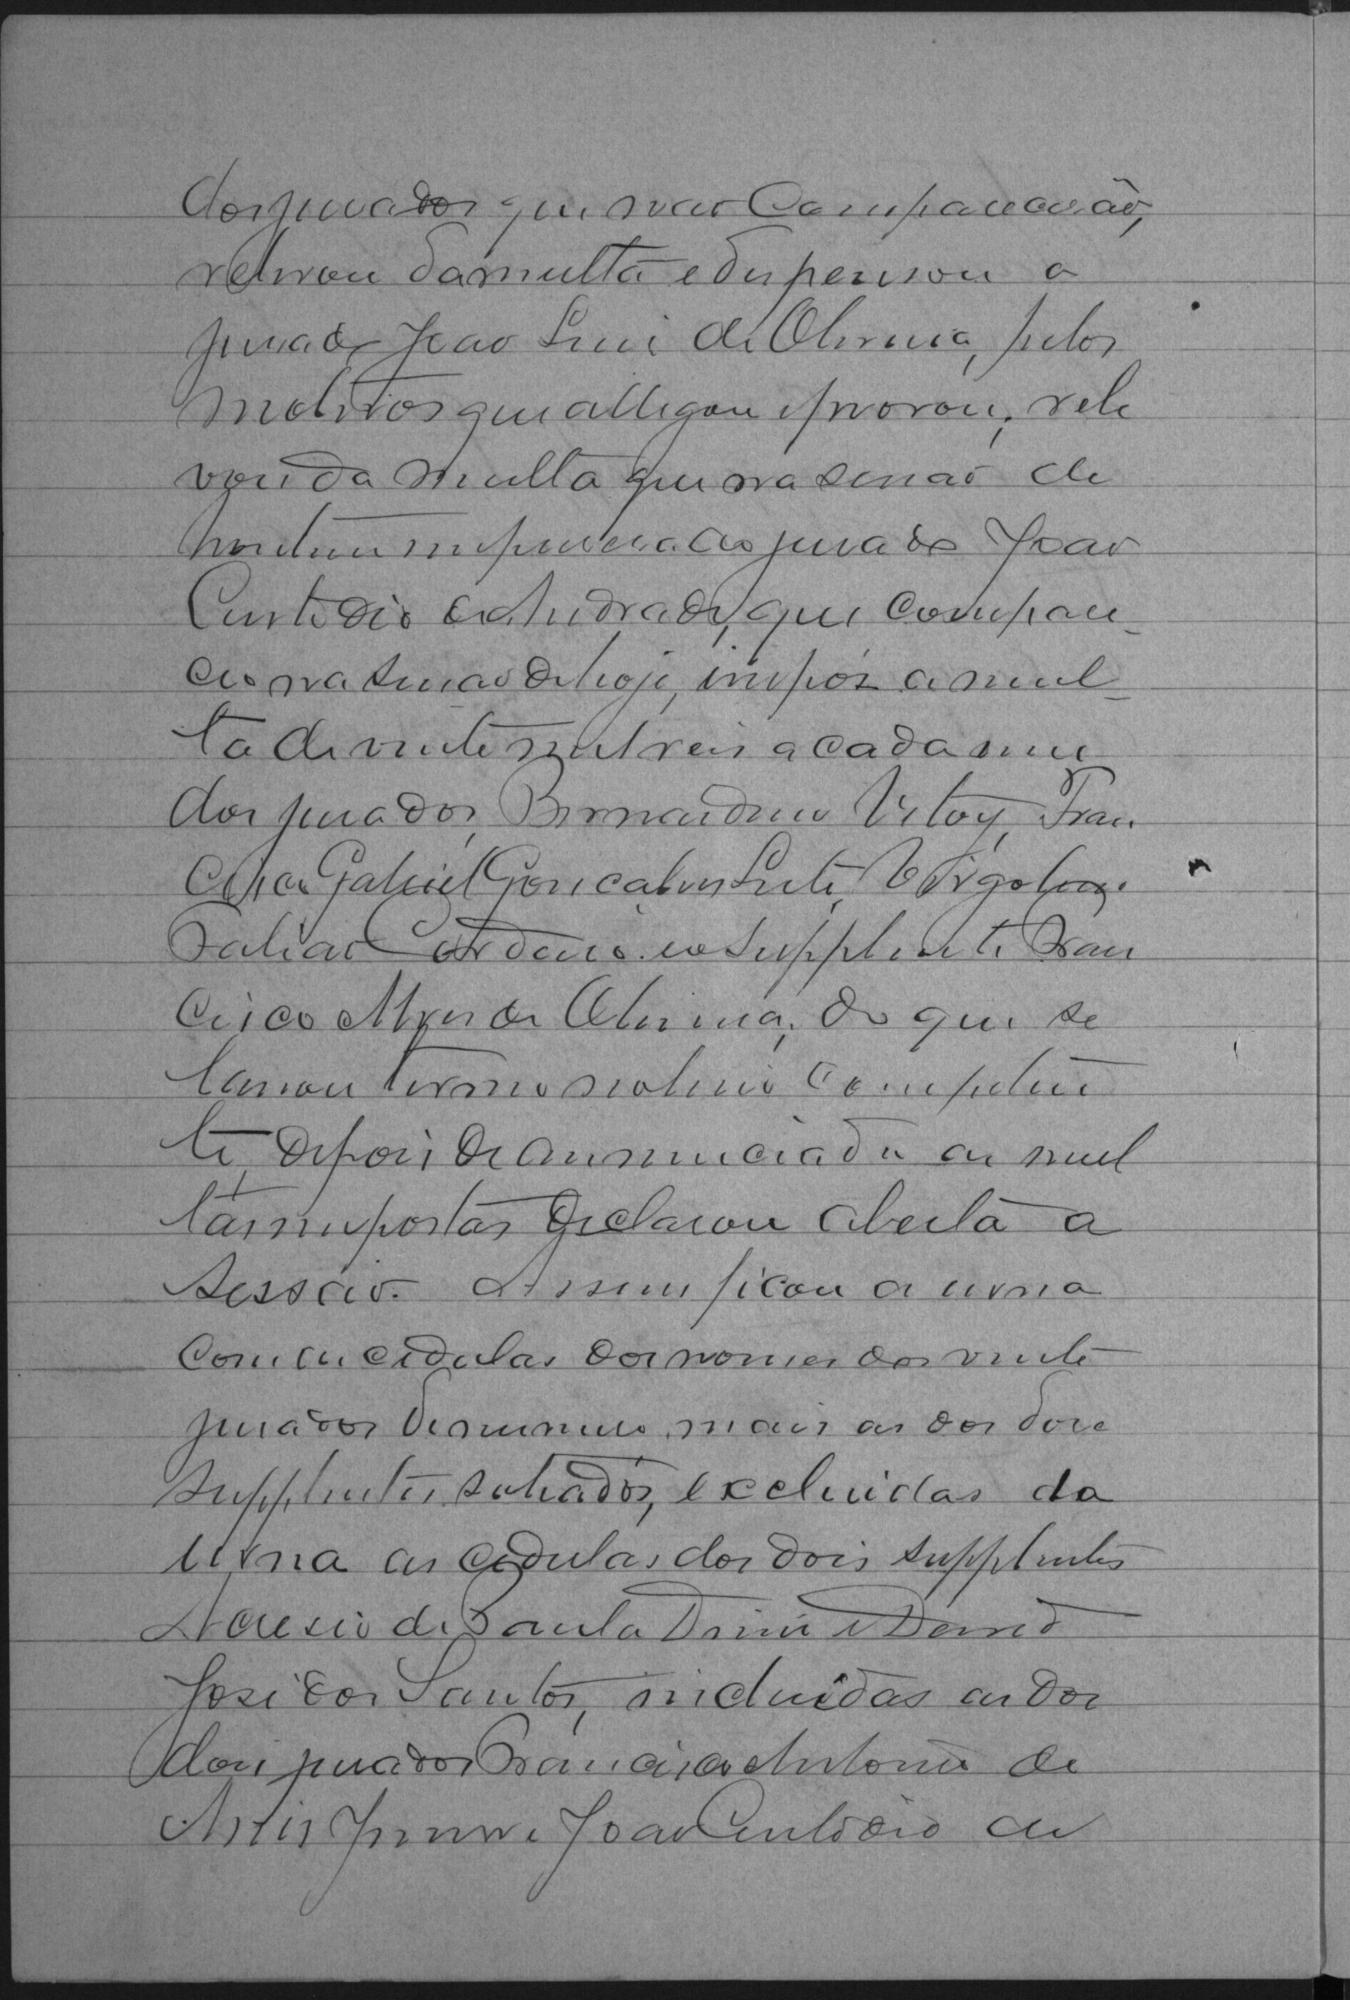 dos jurados que não comparecerão,
relevou da multa e dispensou o
jurado João Luis de Oliveira, pelos
motivos que allegou e provou; rele
vou da multa que na sessão de
hontem impusera ao jurado João
Custodio de Andrade, que compare-
ceo na sessão de hoje, impôz a mul-
ta de vinte mil reis a cada um
dos jurados, Bernardino Fran
cisco Gabriel Gonçalves Leite, Virgolino
Cordeiro e o supplente Fran
cisco Alves de Oliveira; do que se
lavrou termo no livro competen
te, depois de annunciada as mul
tas impostas declarou aberta a
sessão. Assim ficou a urna
com as cedulas dos nomes dos vinte
jurados de numero, mais as dos doze
supplentes sorteados, excluidas da
urna as cedulas dos dois supplentes
Acacio de Paula Diniz e David
José dos Santos, incluidas as dos
dois jurados Francisco Antonio de
Assis Junior e João Custodio de